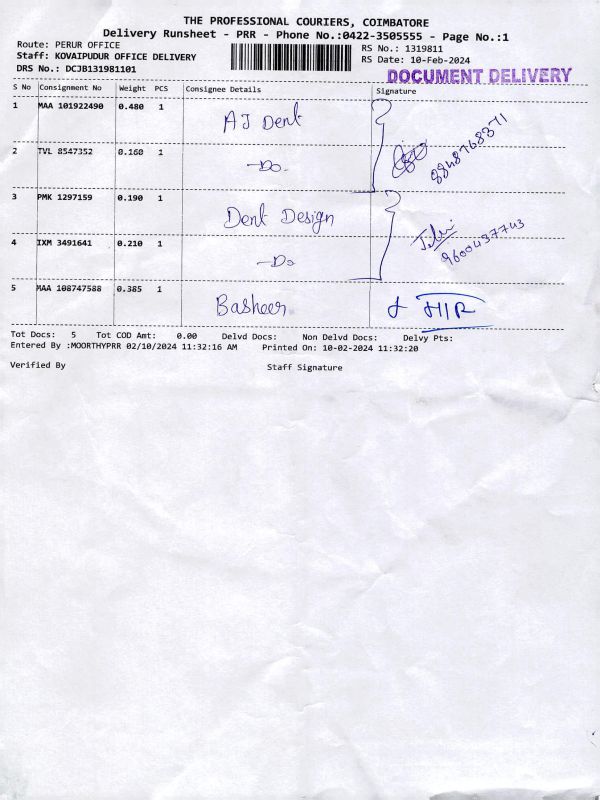 THE PROFESSIONAL COURIERS, COIMBATORE
Delivery Runsheet - PRR - Phone No.:0422-3505555 - Page No.:1
Route: PERUR OFFICE
Staff: KOVAIPUDUR OFFICE DELIVERY
DRS No.: DCJB131981101
RS No.: 1319811
RS Date: 10-Feb-2024
DOCUMENT DELIVERY
S No Consignment No Weight PCS Consignee Details Signature
1 MAA 101922490 0.480 1 AJ Dent
8848768371
2 TVL 8547352 0.160 1 -Do.
3 PMK 1297159 0.190 1 Dent Design
9600437743
4 IXM 3491641 0.210 1 -Do
5 MAA 108747588 0.385 1 Basheer
Tot Docs: 5 Tot COD Amt: 0.00 Delvd Docs: Non Delvd Docs: Delvy Pts:
Entered By :MOORTHYPRR 02/10/2024 11:32:16 AM Printed On: 10-02-2024 11:32:20
Verified By Staff Signature